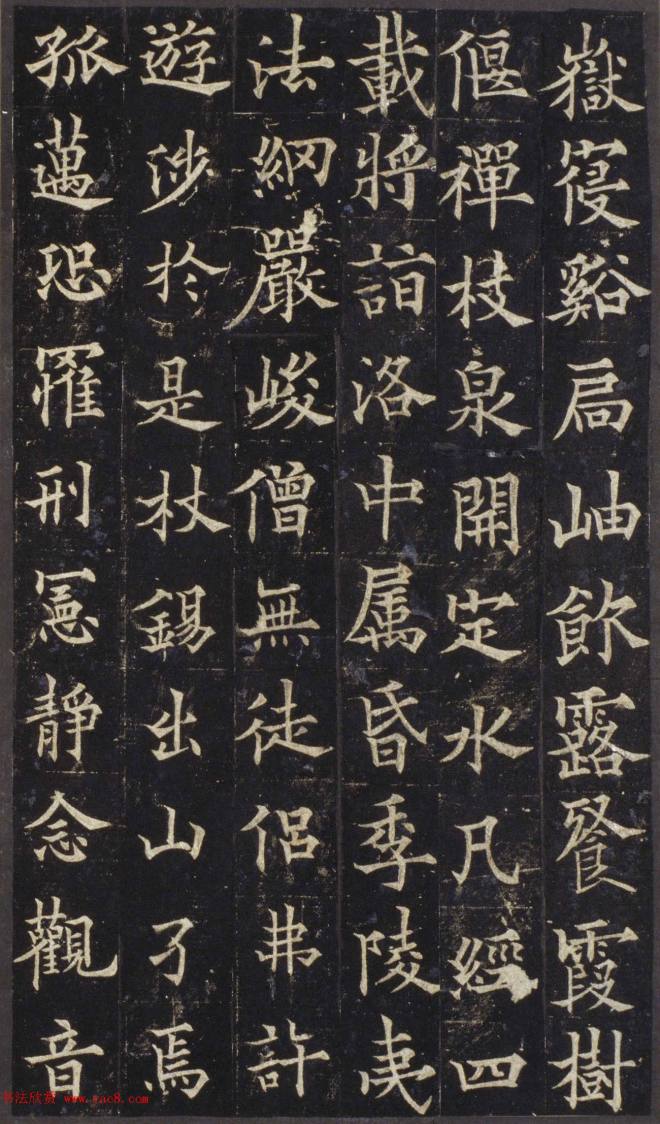 嶽寑谿扃岫飲露飡霞樹
偃禪枝泉開定水凡經四
載將詣洛中属昏季陵夷
法綱嚴峻僧無徒侣弗許
遊涉於是杖錫出山孑焉
孤邁恐罹刑憲静念觀音
书法欣赏 www.yac8.com